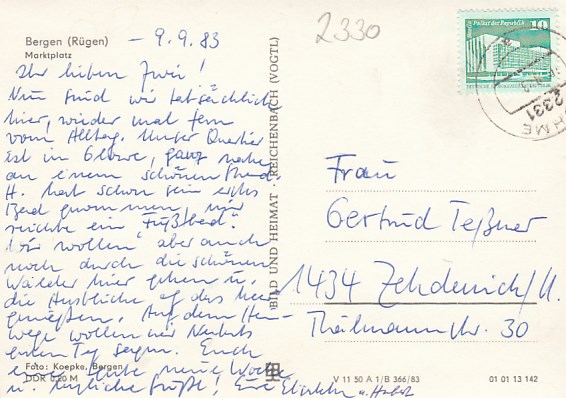 Bergen (Rügen)
Marktplatz
– 9.9.83
2330
Palast der Republik 10
2331
Ihr lieben Zwei!
Nun sind wir tatsächlich
hier, wieder mal fern
vom Alltag. Unser Quartier
ist in Glowe, ganz nahe
an einem schönen Strand.
H. hat schon sein erstes
Bad genommen, mir
reichte ein "Fußbad".
Wir wollen aber auch
noch durch die schönen
Wälder hier gehen u.
die Ausblicke auf das Meer
genießen. Auf dem Heim-
wege wollen wir
guten Tag sagen. Euch
eine gute neue Woche
u. herzliche Grüße! Eure
u.
Foto: Koepke, Bergen
DDR 0,20 M
BILD UND HEIMAT · REICHENBACH (VOGTL)
Frau
Gertrud Teßner
1434 Zehdenick/H.
Thälmannstr. 30
V 11 50 A 1/B 366/83
01 01 13 142